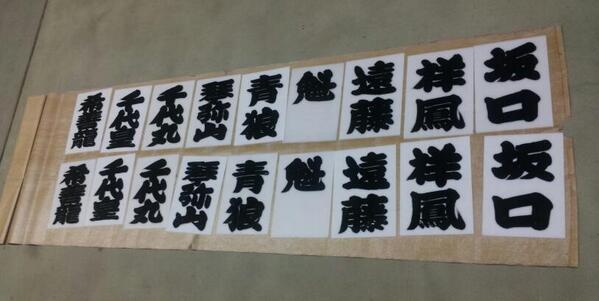 坂口
祥鳳
遠藤
魁
青狼
琴弥山
千代丸
千代皇
希善龍
坂口
祥鳳
遠藤
魁
青狼
琴弥山
千代丸
千代皇
希善龍